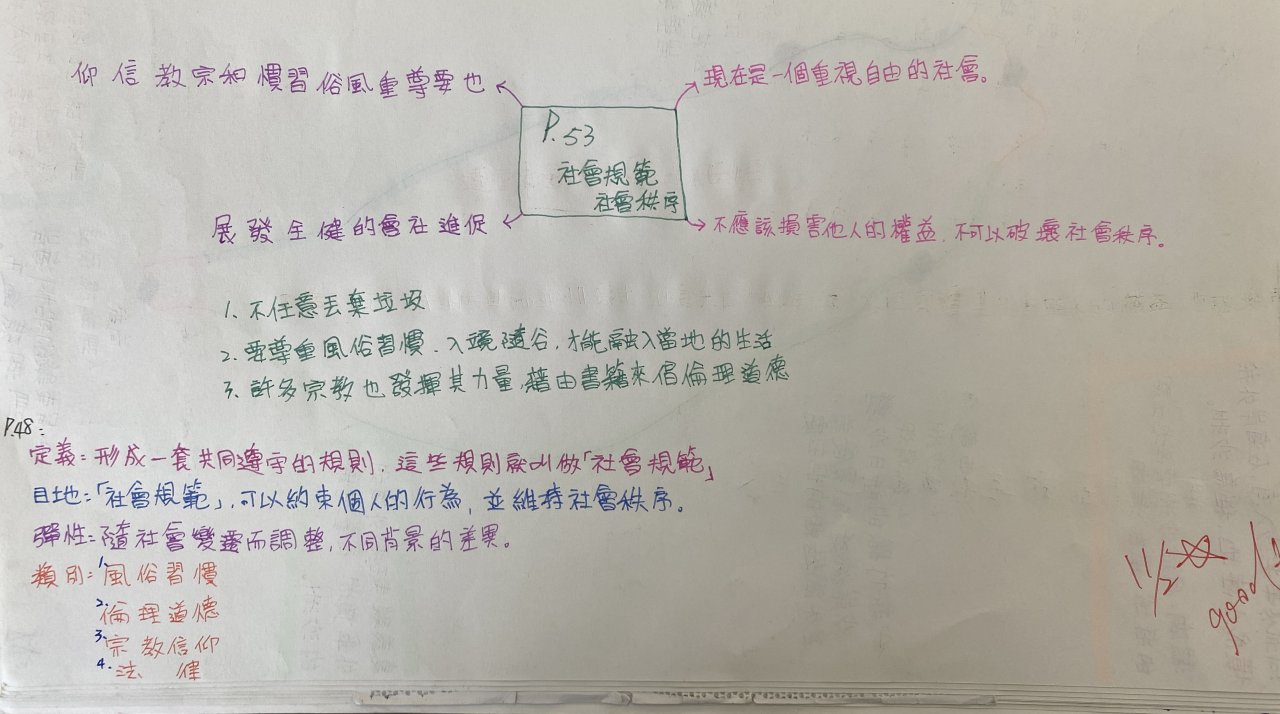 也要尊重風俗習慣和宗教信仰
現在是一個重視自由的社會。
P.53
社會規範
社會秩序
促進社會的健全發展
不應該損害他人的權益,不可以破壞社會秩序。
1. 不任意丟棄垃圾
2. 要尊重風俗習慣、入境隨谷,才能融入當地的生活
3. 許多宗教也發揮其力量,藉由書籍來倡倫理道德
P.48:
定義:形成一套共同遵守的規則,這些規則就叫做「社會規範」
目地:「社會規範」,可以約束個人的行為,並維持社會秩序。
彈性:隨社會變遷而調整,不同背景的差異。
類別:1.風俗習慣
2.倫理道德
3.宗教信仰
4.法 律
good